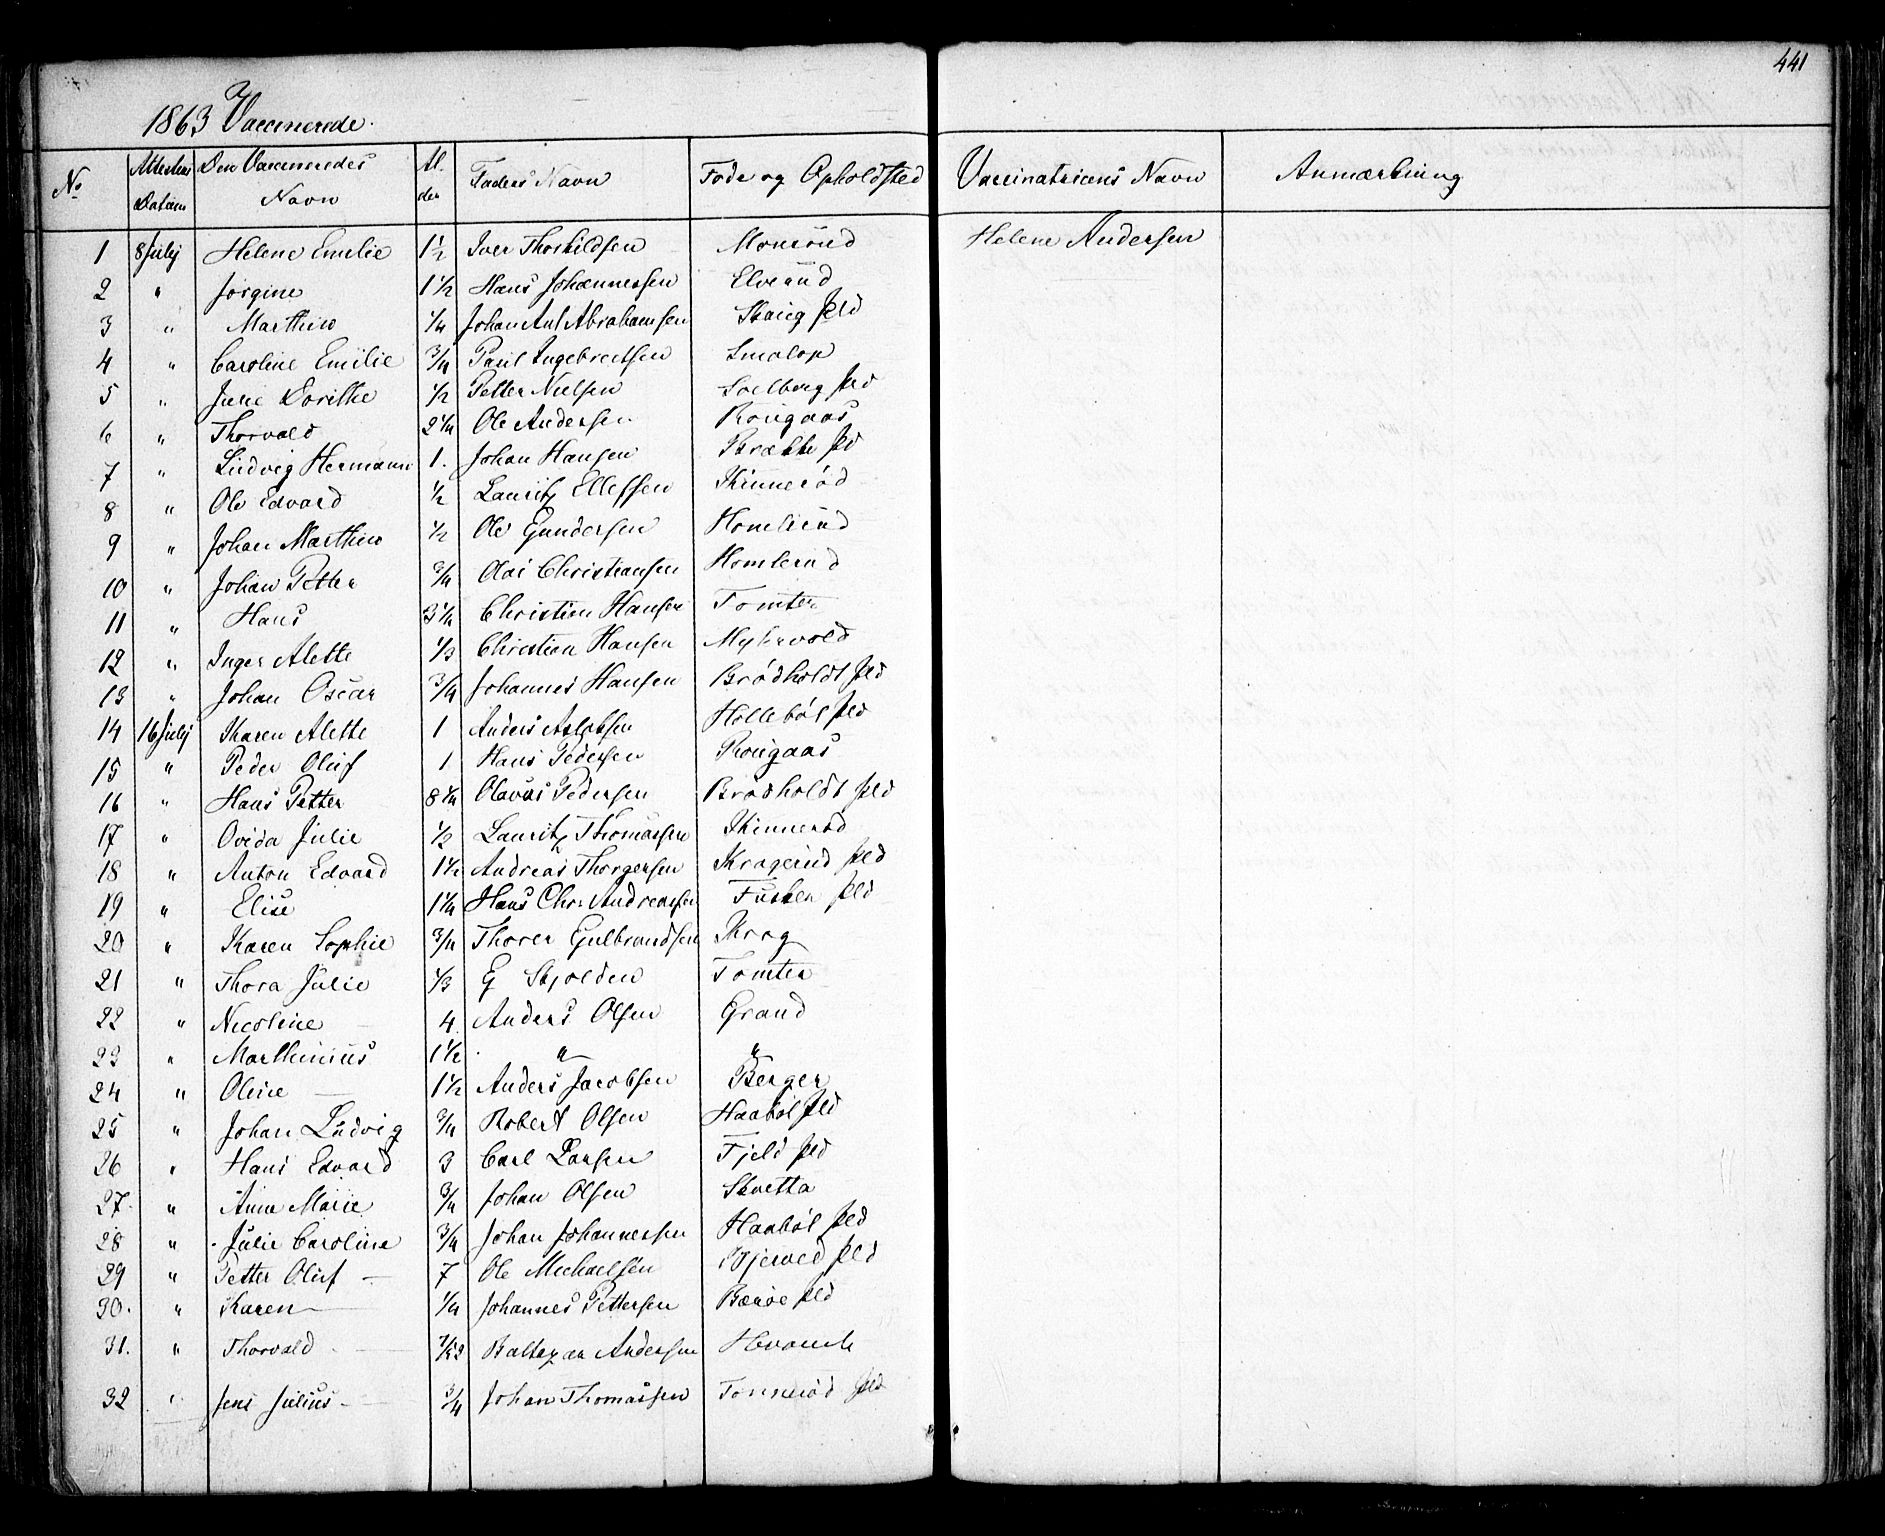 441
1863 Vaccinerede.
No Attestens Datum Den Vaccineredes Navn Al. der Faders Navn Føde og Opholdsted Vaccinatricens Navn Anmærkning
1 8 Julij Helene Emilie 1 1/2 Iver Thorkildsen Monsrud Helene Andersen
2 " Jørgine 1 1/2 Hans Johannessen Elverud
3 " Marthin 1/4 Johan Ant Abrahamsen Skoug Pld
4 " Caroline Emilie 3/4 Paul Ingebretsen Smolop
5 " Julie Dorithe 1/2 Petter Nielsen Solberg Pld
6 " Thorvald 2 1/4 Ole Andersen Rougaas
7 " Ludvig Hermann 1. Johan Hansen Brække Pld
8 " Ole Edvard 1/2 Lauritz Ellefsen Kinnerød
9 " Johan Marthin 1/2 Ole Gundersen Homlerud
10 " Johan Petter 3/4 Olai Christiansen Homlerud
11 " Hans 3 1/4 Christian Hansen Tomter
12 " Inger Alette 1/3 Christian Hansen Mykrvold
13 " Johan Oscar 3/4 Johannes Hansen Brødholdt Pld
14 16 Julij Karen Alette 1 Anders Aslaksen Hollebøl Pld
15 " Peder Oluf 1 Hans Pedersen Rougaas
16 " Hans Petter 8 1/4 Olavus Pedersen Brødholdt Pld
17 " Ovida Julie 1/2 Lauritz Thomassen Kinnerød
18 " Anton Edvard 1 1/2 Andreas Thorgersen Kragerud Pld
19 " Elise 1 1/4 Hans Chr. Andreassen Fusken Pld
20 " Karen Sophie 3/4 Thorer Gulbrandsen Krog
21 " Thora Julie 1/3 G Skjolden Tomter
22 " Nicoline 4. Anders Olsen Graud
23 " Marthinius 1 1/2 " "
24 " Oline 1 1/2 Anders Jacobsen Berger
25 " Johan Ludvig 3/4 Robert Olsen Haabøl Pld
26 " Hans Edvard 3 Carl Larsen Fjeld Pld
27. " Anne Marie 3/4 Johan Olsen Skvetta
28 " Julie Caroline 3/4 Johan Johannessen Haabøl Pld
29 " Petter Oluf 7 Ole Michaelsen Bjerved Pld
30. " Karen 1/4 Johannes Pettersen Bærøe Pld
31. " Thorvald 7/12 Baltzar Andersen
32 " Jens Julius 3/4 Johan Thomassen Tonnerød Pld